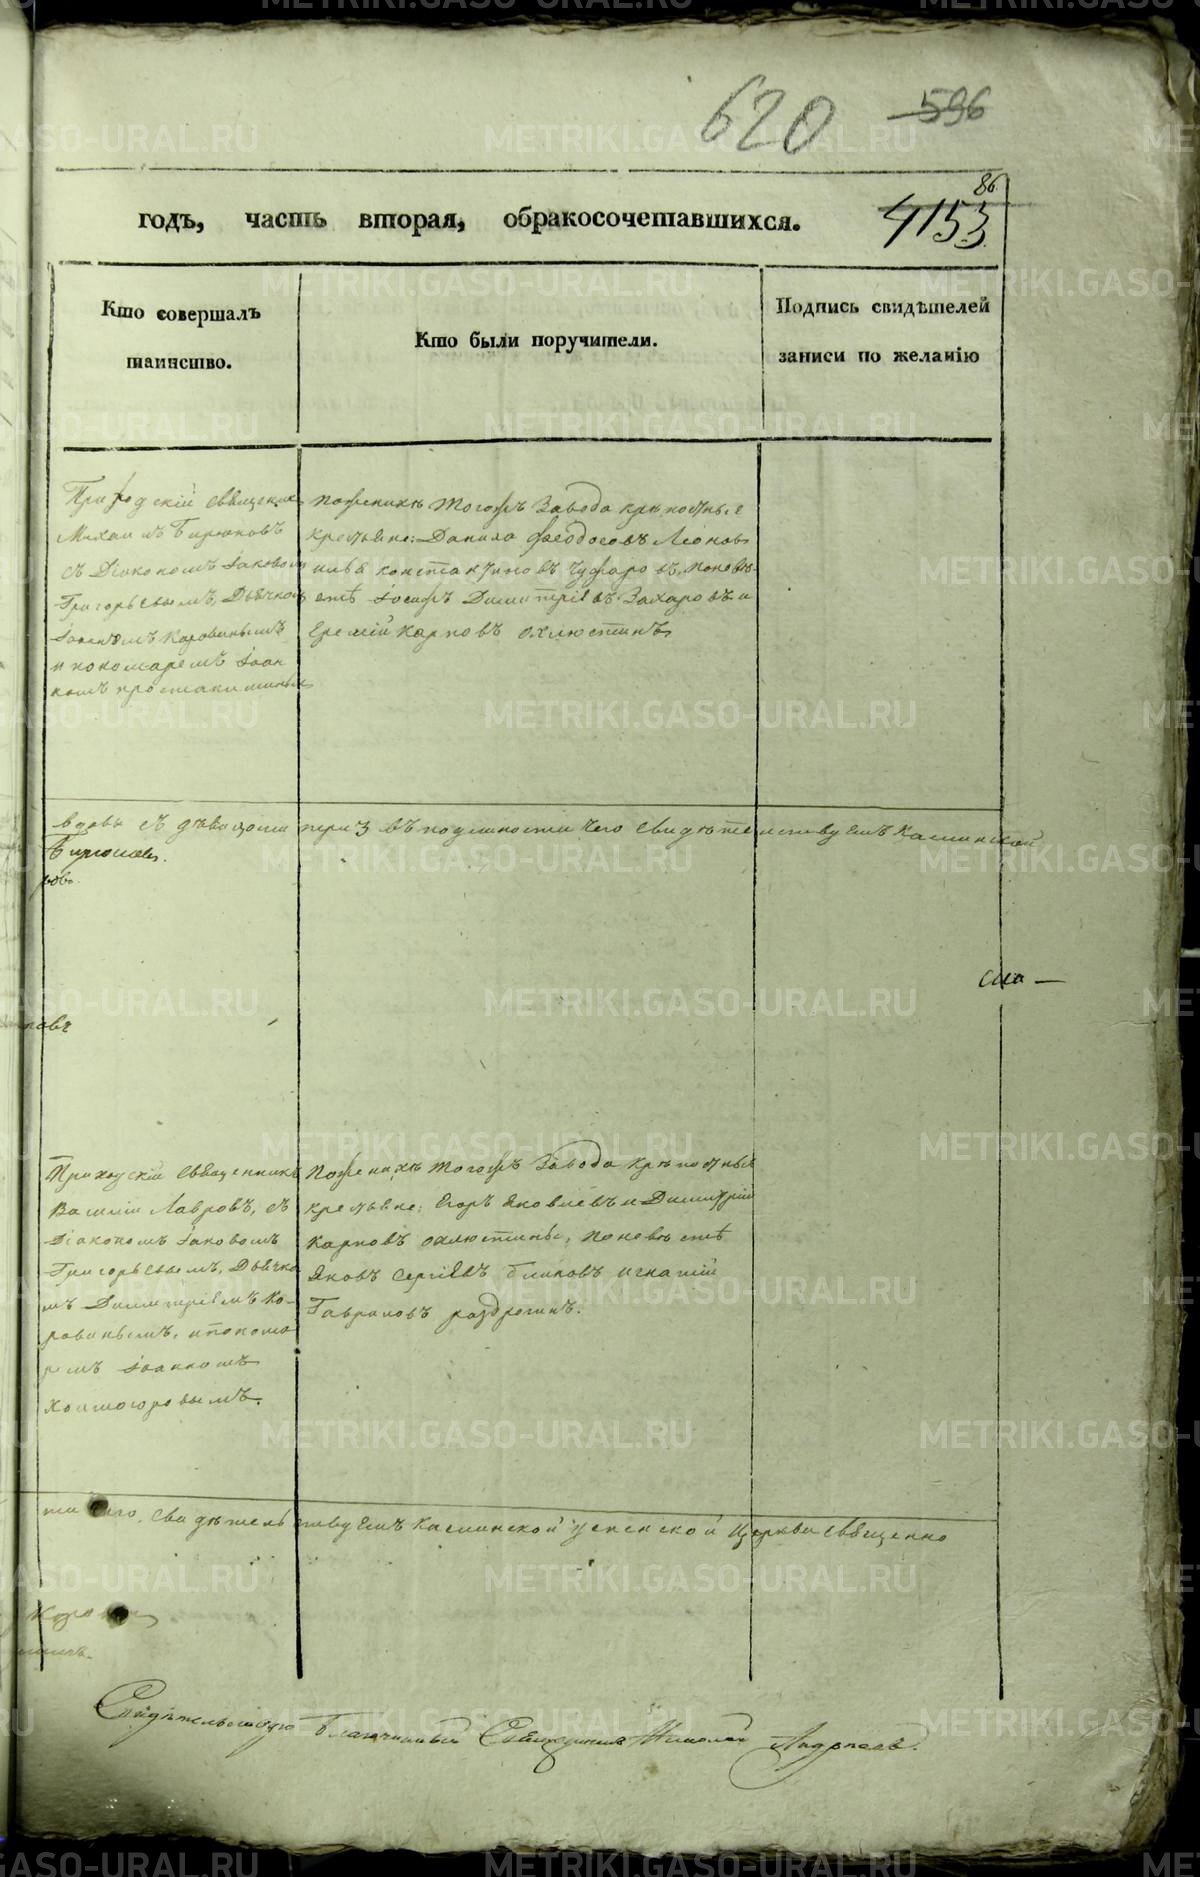 620 596
86
4153
годъ, часть вторая, обракосочетавшихся.
Кто совершалъ
таинство.
Кто были поручители.
Подпись свидѣтелей
записи по желанію
Приходскій священникъ
Михаилъ Бирюковъ
съ Діакономъ Іаковомъ
Григорьевымъ, Дьячкомъ
и пономаремъ Іоан
номъ
поженихѣ тогожъ Завода крѣпостные
крестьяне: Данило Феодосовъ Леонов
илья константиновъ поневѣ
стѣ Іосифъ Димитріевъ Захаровъ и
Еремій карповъ охлюстинъ
вдовы съ дѣвицами три 3 въ подлинности чего свидѣтельствуемъ Каслинской
Бирюков
ровъ
новъ
сла —
Приходскій священникъ
Василій Лавровъ, съ
Діакономъ Іаковомъ
Григорьевымъ, Дьячко
мъ Димитріемъ Ко-
ровинымъ, ипонома
ремъ Іоанномъ
Холмогоровымъ.
Поженихѣ тогожъ Завода крѣпостные
крестьяне: Егоръ Яковлевъ и Димитрій
карповъ охлюстины, поневѣстѣ
Яковъ Сергіевъ блиновъ игнатій
Гавриловъ раздрогинъ.
ти чего свидѣтельствуемъ Каслинской успенской Церкви священно
Свидѣтельствую Благочинный Священникъ Николай Андреевъ.
METRIKI.GASO-URAL.RU